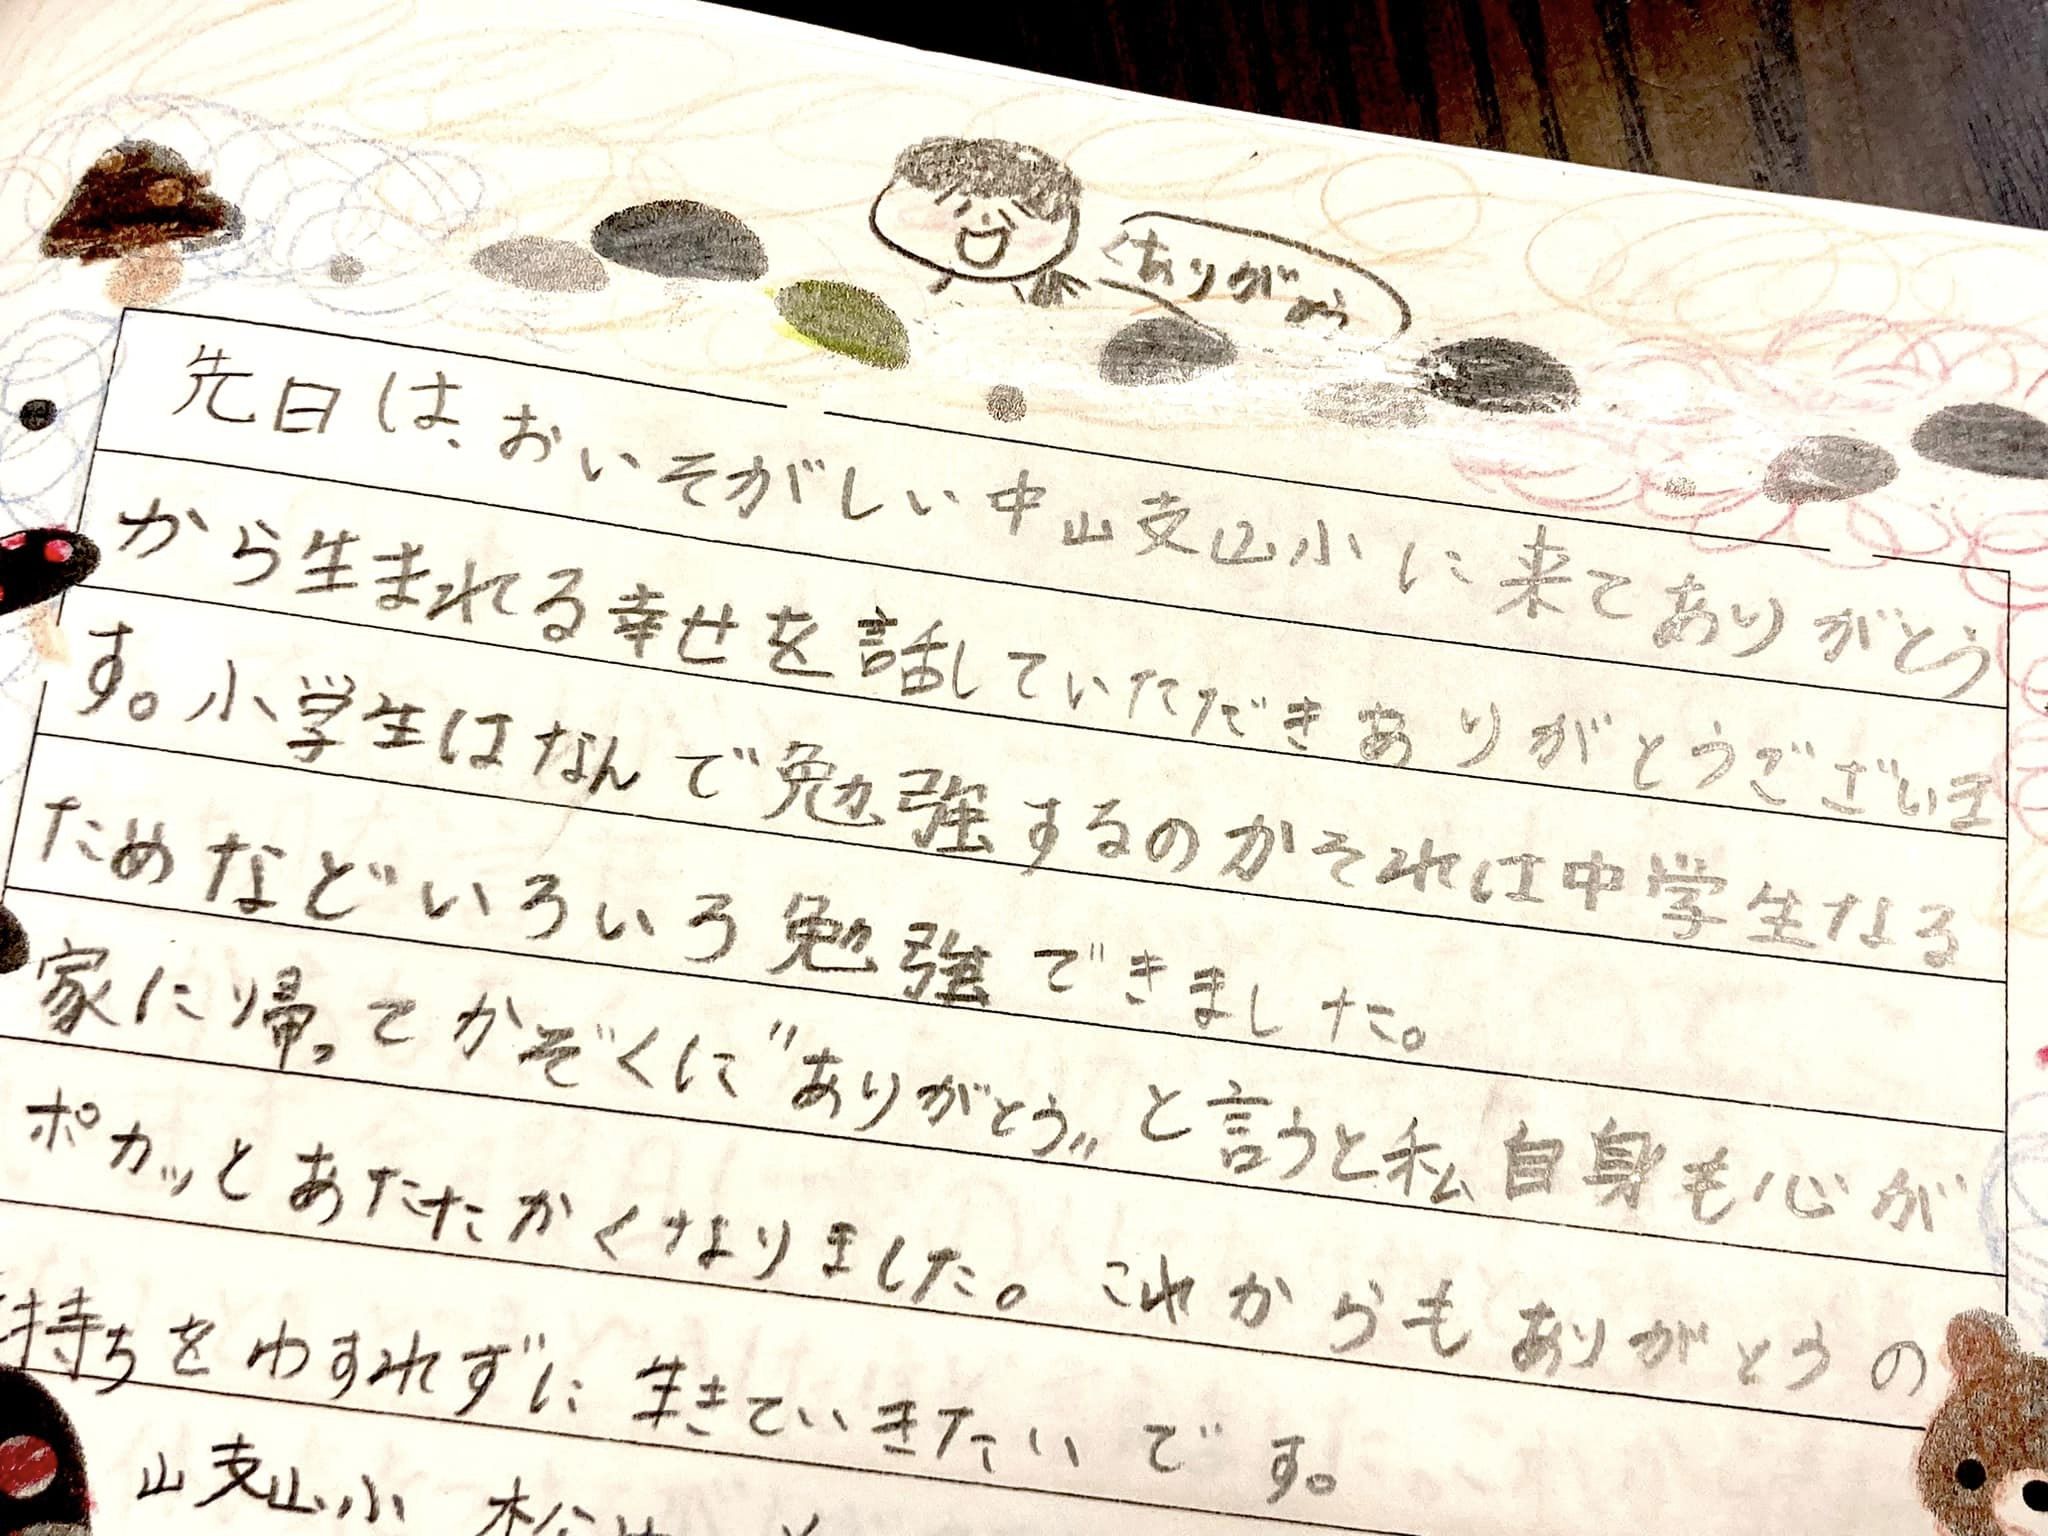 ありがとう
先日は、おいそがしい中山支山小に来てありがとう
から生まれる幸せを話していただきありがとうございま
す。小学生はなんで勉強するのかそれは中学生なる
ためなどいろいろ勉強できました。
家に帰ってかぞくに"ありがとう"と言うと私自身も心が
ポカッとあたたかくなりました。これからもありがとうの
持ちをわすれずに生きていきたいです。
山支山小